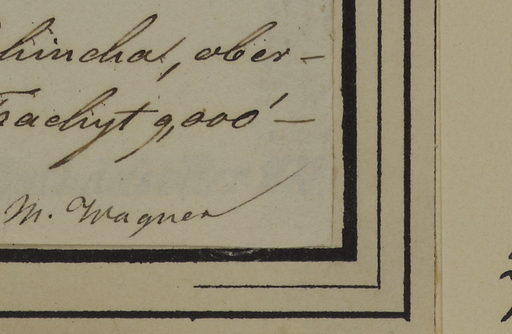 hincha, ober-
Trachyt 9,000'-
M. Wagner